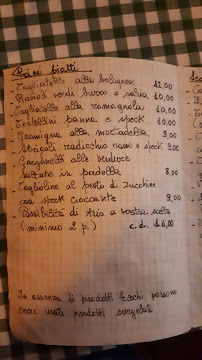 Primi piatti
- Tagliatelle alla bolognese 12,00
- Ravioli verdi burro e salvia 10,00
- Tagliatelle alla romagnola 10,00
- Tortellini panna e speck 10,00
- Gramigna alla mortadella 9,00
- Strigoli radicchio rosso e speck 9,00
- Garganelli alle verdure
saltate in padella 8,00
- Tagliolini al pesto di zucchine
con speck croccante 9,00
- Possibilità di tris a vostra scelta
(minimo 2 p.) c.d. € 14,00
In assenza di prodotti freschi possono
essere usati prodotti surgelati